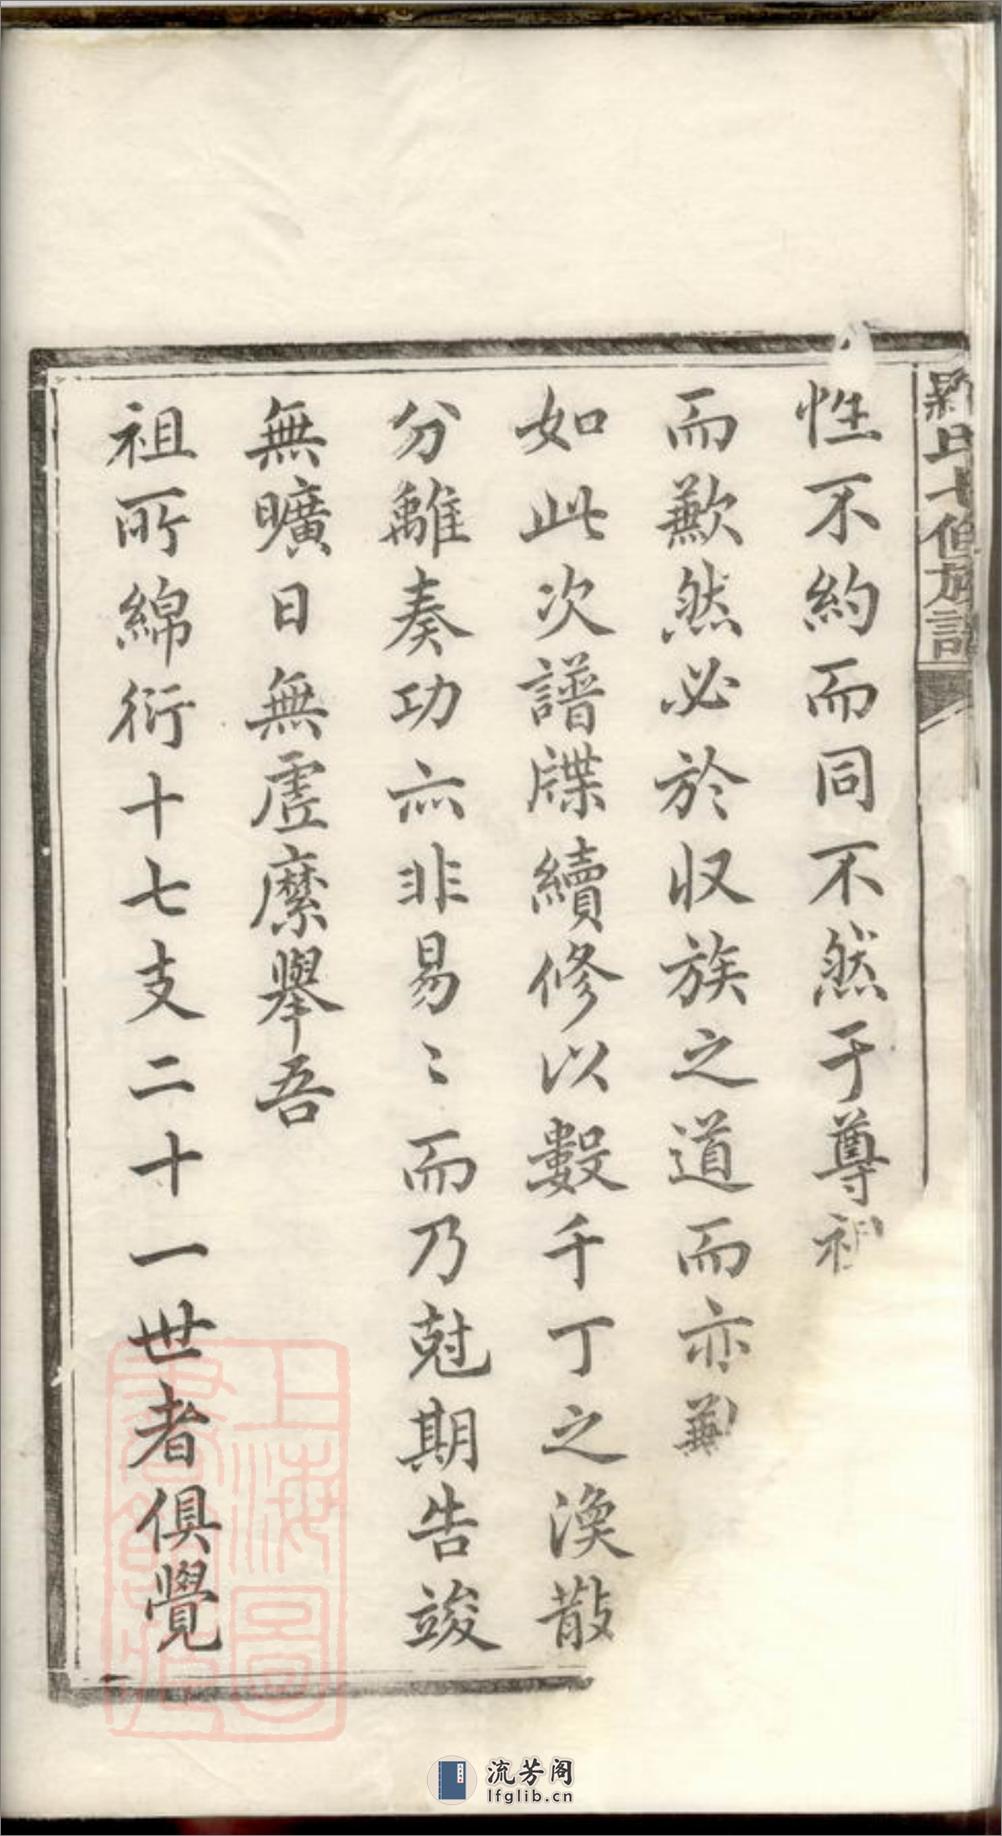 性不約而同不然于尊祖
而歉然必於収族之道而亦
如此次譜牒續修以數千丁之渙散
分離奏功亦非易〻而乃尅期告竣
無曠日無虛縻舉吾
祖所綿衍十七支二十一世者俱覺
氏七伯族譜
上海圖書館藏
流芳阁
lfglib.cn